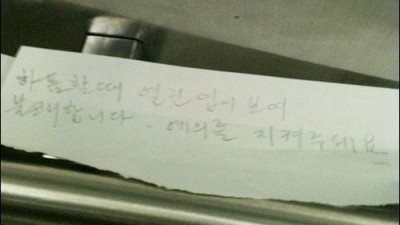 하품할때 열린 입이 보여
불편합니다. 예의를 지켜주세요